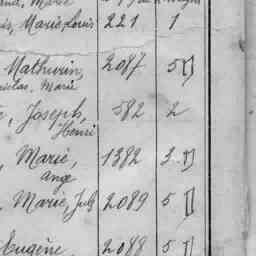 Marie
Marie Louis 221 1
Mathurin, 2087 5
Marie
Joseph, 582 2
Henri
Marie, 1382 3
ange
Marie, July 2089 5
Eugène 2088 5